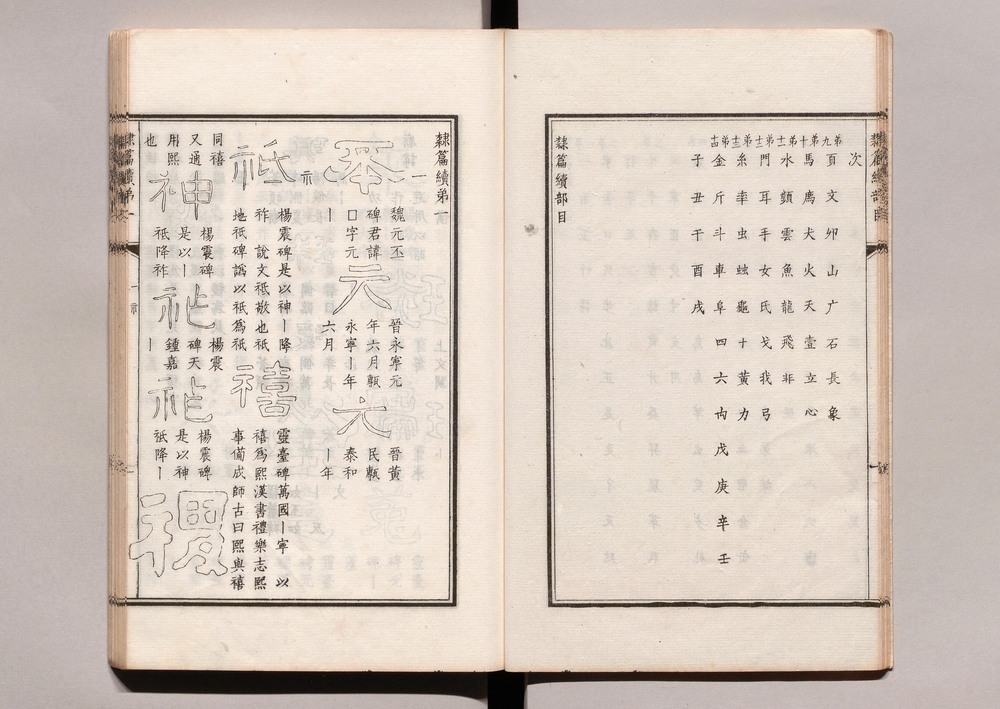 次
弟九頁文卯山广石長象
弟十馬鹰犬火天壹立心
弟十一水頻雲魚龍飛非
弟十二門耳手女氏戈我弓
弟十三糸率虫䖵龜十黃力
弟十四金斤斗車阜四六禸戊庚辛壬
子丑干酉戌
隸篇續部目
隸篇續弟一
一
丕
魏元丕
碑君諱
囗字元
丨
元
晉永寧元
年六月甎
永寧丨年
六月
元
晉黃
民甎
泰和
丨年
示
祇
楊震碑是以神丨降
祚 說文祇敬也祇
地祇碑譌以祇為祇
禧
靈臺碑萬國丨寧 以
禧為熙漢書禮樂志熙
事備成師古曰熙與禧
同禧
又通
用熙
也
神
楊震碑
是以丨
祇降祚
祉
楊震
碑天
鍾嘉
丨
祉
楊震碑
是以神
祇降丨
禝
隸篇續弟一
一
示